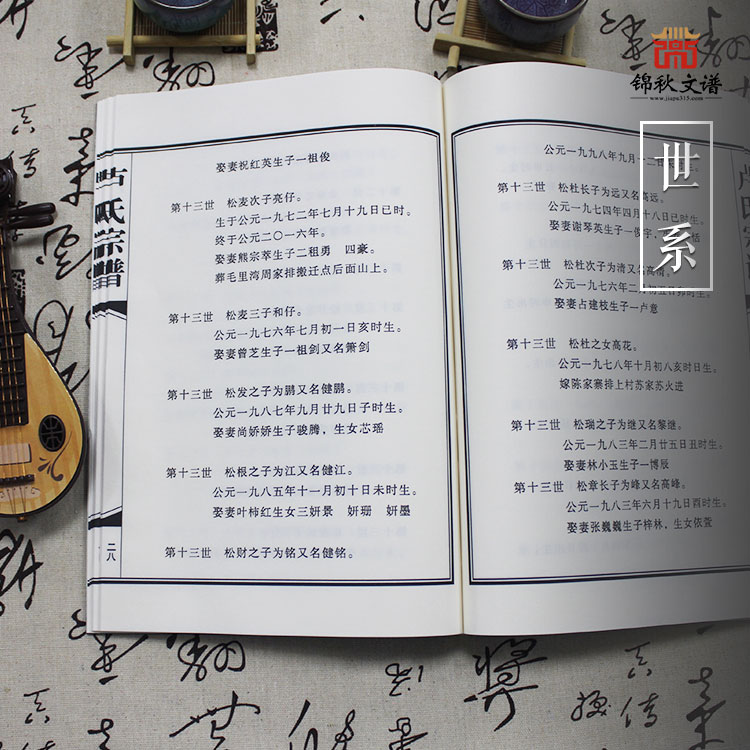 锦秋文谱
www.jiapu315.com
世系
娶妻祝红英生子一祖俊
第十三世 松麦次子亮仔。
生于公元一九七二年七月十九日巳时。
终于公元二〇一六年。
娶妻熊宗萃生子二祖勇 四豪。
葬毛里湾周家排搬迁点后面山上。
第十三世 松麦三子和仔。
公元一九七六年七月初一日亥时生。
娶妻曾芝生子一祖剑又名箫剑
第十三世 松发之子为鹏又名健鹏。
公元一九八七年九月廿九日子时生。
娶妻尚娇娇生子骏腾，生女芯瑶
第十三世 松根之子为江又名健江。
公元一九八五年十一月初十日未时生。
娶妻叶柿红生女三妍景 妍珊 妍墨
第十三世 松财之子为铭又名健铭。
氏宗谱
二八
公元一九九八年九月十二日
第十三世 松杜长子为远又名高远。
公元一九七四年四月十八日已时生。
娶妻谢琴英生子一俊宇，
第十三世 松杜次子为清又名高清。
公元一九七六年二月
娶妻占建枝生子一卢意
第十三世 松杜之女高花。
公元一九七八年十月初八亥时日生。
嫁陈家寨排上村苏家苏火进
第十三世 松瑞之子为继又名黎继。
公元一九八三年二月廿五日丑时生。
娶妻林小玉生子一博辰
第十三世 松章长子为峰又名高峰。
公元一九八三年六月十九日酉时生。
娶妻张巍巍生子梓林，生女依萱